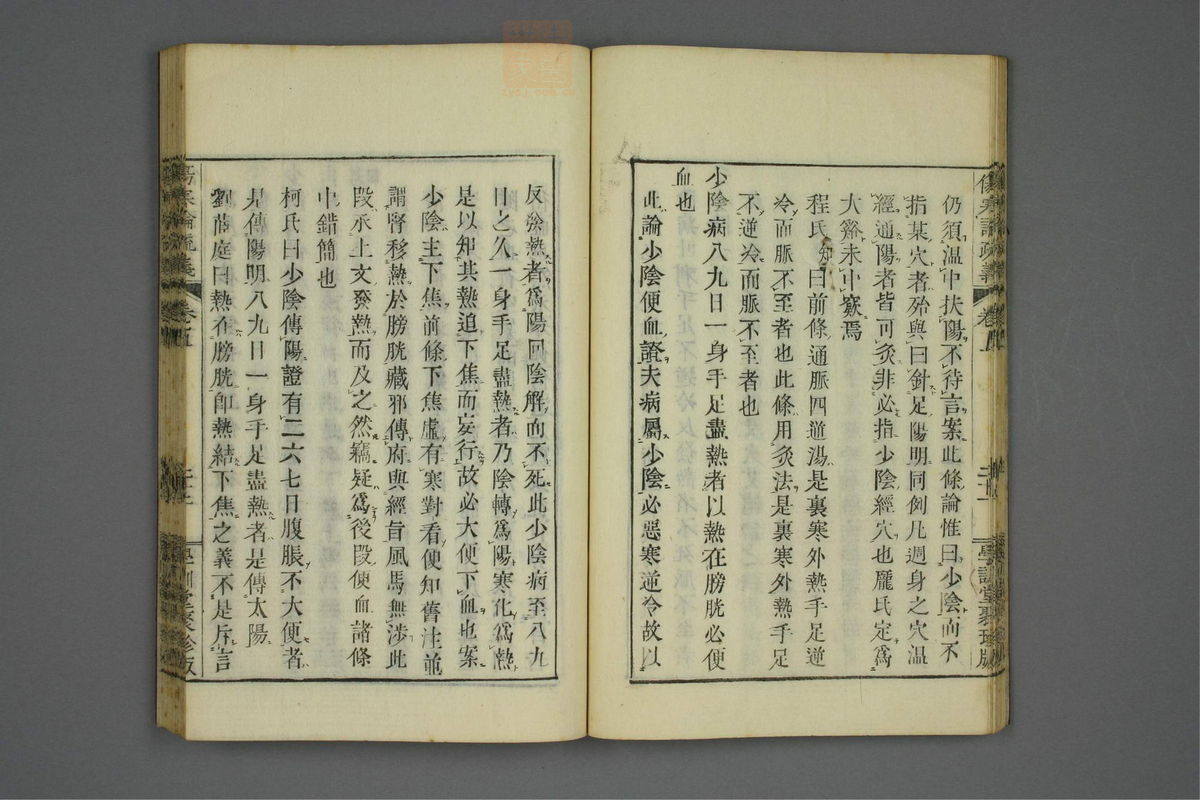 仍須溫中扶陽不待言案此條論惟曰少陰而不
指某穴者殆與曰針足陽明同例凡週身之穴溫
經通陽者皆可灸非必指少陰經穴也龐氏定為
大谿未中窾焉
程氏知曰前條通脈四逆湯是裏寒外熱手足逆
冷而脈不至者也此條用灸法是裏寒外熱手足
不逆冷而脈不至者也
少陰病八九日一身手足盡熱者以熱在膀胱必便
血也
此論少陰便血證夫病屬少陰必惡寒逆冷故以
反發熱者爲陽回陰解而不死此少陰病至八九
日之久一身手足盡熱者乃陰轉爲陽寒化爲熱
是以知其熱追下焦而妄行故必大便下血也案
少陰主下焦前條下焦虛有寒對看便知舊注並
謂腎移熱於膀胱藏邪傳府與經旨風馬無涉此
段承上文發熱而及之然竊疑爲後段便血諸條
中錯簡也
柯氏曰少陰傳陽證有二六七日腹脹不大便者
是傳陽明八九日一身手足盡熱者是傳太陽
劉茝庭曰熱在膀胱卽熱結下焦之義不是斥言
傷寒論疏義 卷五 學訓堂聚珍版